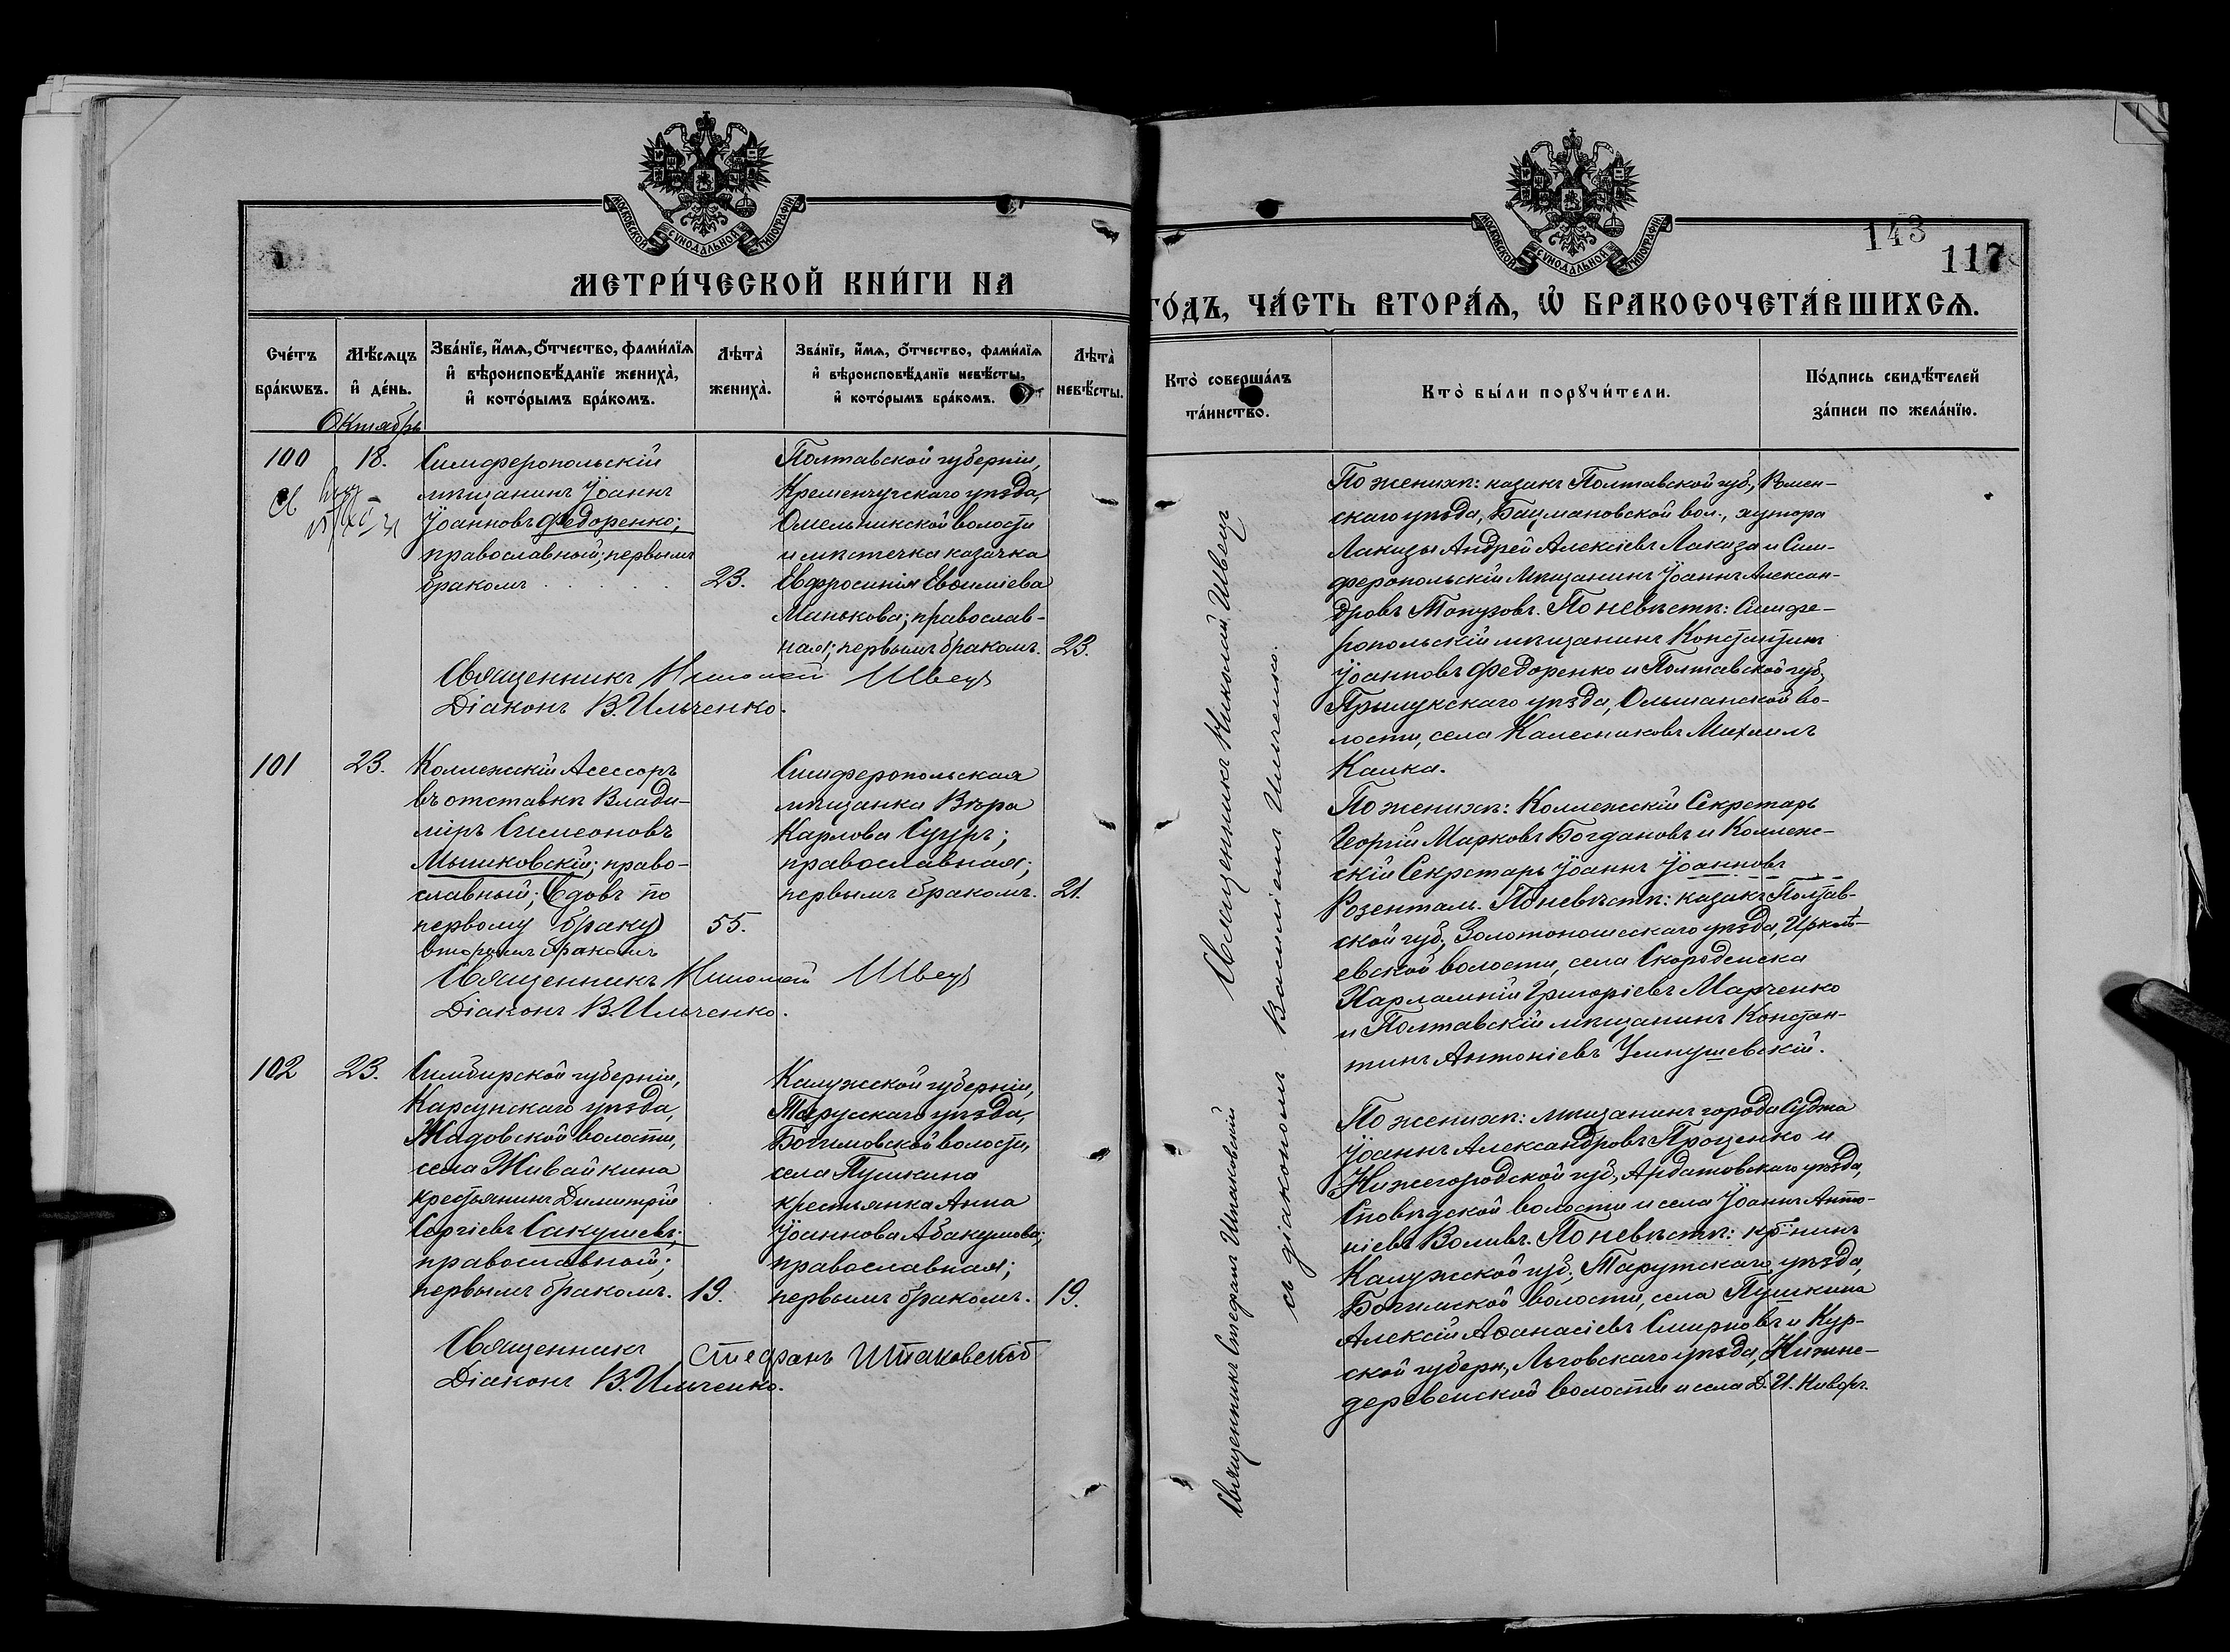 МОСКОВСКОЙ СѴНОДАЛЬНОЙ ТИПОГРАФІИ
МЕТРИ́ЧЕСКОЙ КНИ́ГИ НА
Сче́тъ бра́кѡвъ.
Мѣ́сѧцъ и҆ де́нь.
Зва́нїе, и҆́мѧ, ѻ҆́тчество, фами́лїѧ и҆ вѣроисповѣ́данїе жениха̀, и҆ кото́рымъ бра́комъ.
Лѣта̀ жениха̀.
Зва́нїе, и҆́мѧ, ѻ҆́тчество, фами́лїѧ и҆ вѣроисповѣ́данїе невѣ́сты, и҆ кото́рымъ бра́комъ.
Лѣта̀ невѣ́сты.
Октябрь
100
18.
Симферопольскій
мѣщанинъ Іоаннъ
Іоанновъ Федоренко;
православный; первымъ
бракомъ . . . . . .
23.
Полтавской губерніи,
Кременчугскаго уѣзда,
Омельникской волости
и мѣстечка казачка
Евфросинія Евѳиміева
Минькова; православ-
ная; первымъ бракомъ.
23.
Священникъ Николай Швецъ
Діаконъ В. Ильченко.
101
23.
Коллежскій Асессоръ
въ отставкѣ Влади-
міръ Симеоновъ
Мышковскій; право-
славный; Вдовъ по
первому браку
вторымъ бракомъ
55.
Симферопольская
мѣщанка Вѣра
Карлова Сууръ;
православная;
первымъ бракомъ.
21.
Священникъ Николай Швецъ
Діаконъ В. Ильченко.
102
23.
Симбирской губерніи,
Карсунскаго уѣзда,
Жадовской волости,
села Живайкина
крестьянинъ Димитрій
Сергіевъ Сакушевъ;
православный;
первымъ бракомъ.
19.
Калужской губерніи,
Тарусскаго уѣзда,
Богимовской волости,
села Пушкина
крестьянка Анна
Іоаннова Абакумова;
православная;
первымъ бракомъ.
19.
Священникъ Стефанъ Шпаковскій
Діаконъ В. Ильченко.
МОСКОВСКОЙ СѴНОДАЛЬНОЙ ТИПОГРАФІИ
143
117
ГО́ДЪ, ЧА́СТЬ ВТОРА́Ѧ, Ѽ БРАКОСОЧЕТА́ВШИХСѦ.
Кто̀ соверша́лъ та́инство.
Кто̀ бы́ли порꙋчи́тели.
По́дпись свидѣ́телей за́писи по жела́нїю.
Священникъ Николай Швецъ
Священникъ Стефанъ Шпаковскій
съ діакономъ Василіемъ Ильченко.
По женихѣ: казакъ Полтавской губ., Ромен-
скаго уѣзда, Бацмановской вол., хутора
Лакизы Андрей Алексіевъ Лакиза и Сим-
феропольскій мѣщанинъ Іоаннъ Алексан-
дровъ Топузовъ. По невѣстѣ: Симфе-
ропольскій мѣщанинъ Константинъ
Іоанновъ Федоренко и Полтавской губ.,
Прилукскаго уѣзда, Ольшанской во-
лости, села Калесниковъ Михаилъ
Калка.
По женихѣ: Коллежскій Секретарь
Георгій Марковъ Богдановъ и Коллеж-
скій Секретарь Іоаннъ Іоанновъ
Розенталь. По невѣстѣ: казакъ Полтав-
ской губ., Золотоношскаго уѣзда, Ирклѣ-
евской волости, села Скородиска
Харлампій Григоріевъ Марченко
и Полтавскій мѣщанинъ Констан-
тинъ Антоніевъ
По женихѣ: мѣщанинъ города Суджа
Іоаннъ Александровъ Проценко и
Нижегородской губ., Ардатовскаго уѣзда,
волости и села Іоаннъ Анто-
ніевъ Воливъ. По невѣстѣ: кр-нинъ
Калужской губ., Тарусскаго уѣзда,
Богимской волости, села Пушкина
Алексій Аѳанасіевъ Смирновъ и Кур-
ской губерн., Льговскаго уѣзда, Нижне-
деревенской волости и села Д. И.